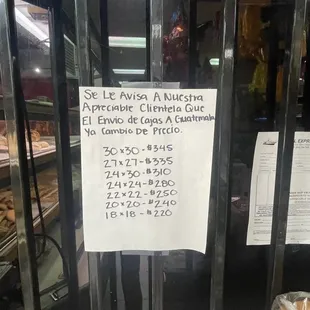 Se Le Avisa A Nuestra
Apreciable Clientela Que
El Envio de Cajas A Guatemala
Ya Cambio De Precio.
30 x 30 - $345
27 x 27 - $335
24 x 30 - $310
24 x 24 - $280
22 x 22 - $250
20 x 20 - $240
18 x 18 - $220